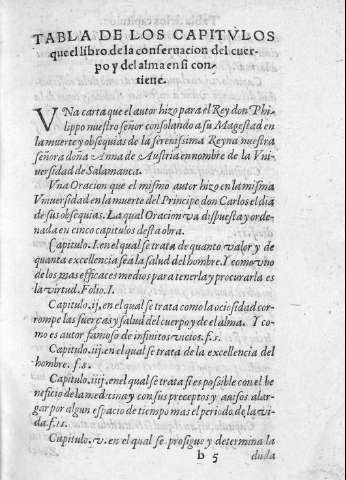 TABLA DE LOS CAPITVLOS
que el libro de la conseruacion del cuer-
po y del alma en si con-
tiene.
VNa carta que el autor hizo para el Rey don Phi-
lippo nuestro señor consolando a su Magestad en
la muerte y obsequias de la serenissima Reyna nuestra
señora doña Anna de Austria en nombre de la Vni-
uersidad de Salamanca.
Vna Oracion que el mismo autor hizo en la misma
Vniuersidad en la muerte del Principe don Carlos el dia
de sus obsequias. La qual Oracion va dispuesta y orde-
nada en cinco capitulos desta obra.
Capitulo. I. en el qual se trata de quanto valor y de
quanta excellencia sea la salud del hombre. Y como vno
de los mas efficaces medios para tenerla y procurarla es
la virtud. Folio. I.
Capitulo. ij. en el qual se trata como la ociosidad cor-
rompe las fuerças y salud del cuerpo y de el alma. Y co-
mo es autor famoso de infinitos vicios. f. 5.
Capitulo. iij. en el qual se trata de la excellencia del
hombre. f. 8.
Capitulo. iiij. en el qual se trata si es possible con el be
neficio de la medicina y con sus preceptos y auisos alar-
gar por algun espacio de tiempo mas el periodo de la vi-
da. f.
Capitulo. v. en el qual se prosigue y determina la
b 5 duda